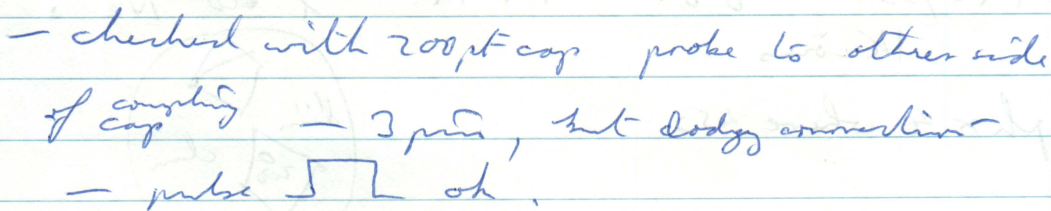 — checked with 200pf cap probe to other side
of coupling cap — 3 pin, but dodgy connection
— pulse ok.